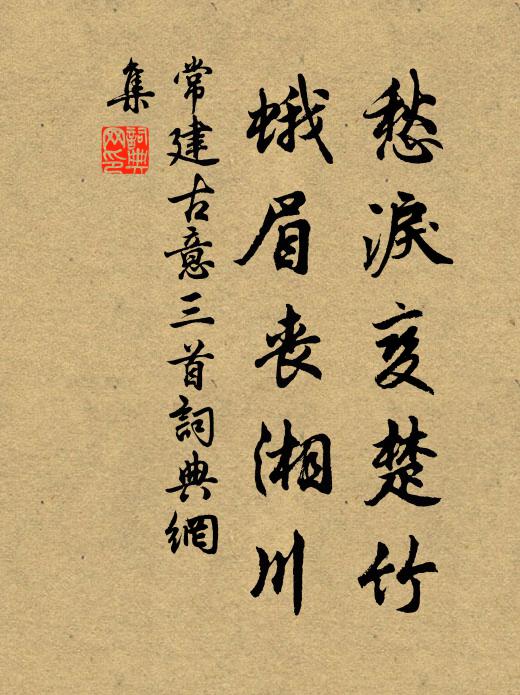 愁淚变楚竹
蛾眉丧湘川
常建古意三首詞典網
集
詞典网印